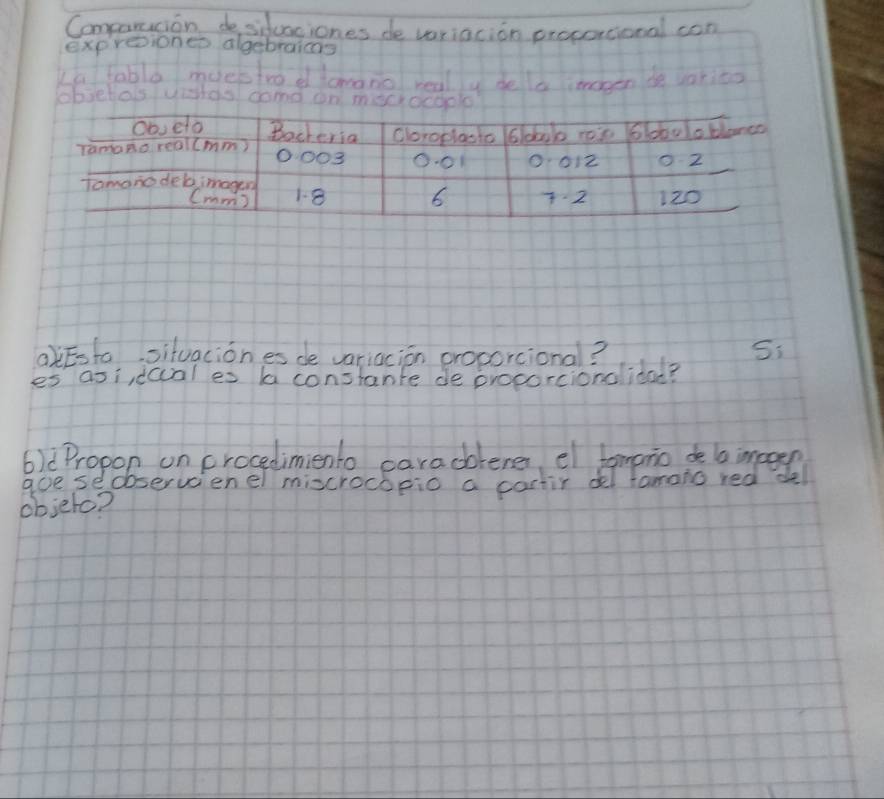 Comparación de situaciones de variación proporcional con
expresiones algebraicas
La tabla muestra el tamano real y de la imagen de varios
objetos vistos como on miscrocopio
Objeto Bacteria Cloroplasto Globulo rojo Globulo blanco
Tamano real (mm) 0.003 0.01 0.012 0.2
Tamano de la imagen
(mm) 1.8 6 7.2 120
a)¿Esta situación es de variación proporcional? Si
es asi, ¿cual es la constante de proporcionalidad?
b)¿Propon un procedimiento para obtener el tamario de la imagen
que se observa en el miscrocopio a partir del tamano real del
objeto?